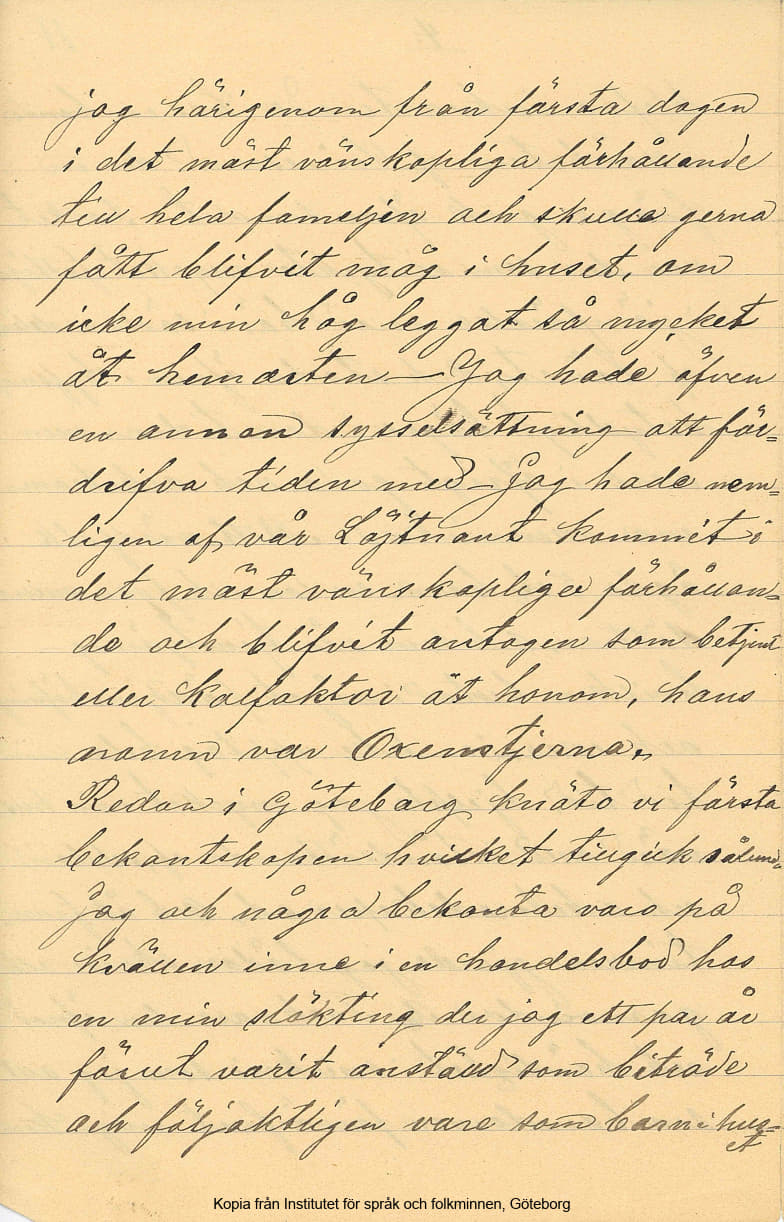 jag härigenom från första dagen
i det mäst vänskapliga förhållande
till hela fameljen och skulle gerna
fått blifvit måg i huset, om
icke min håg leggat så mycket
åt hemorten — Jag hade äfven
en annan sysselsättning att för=
drifva tiden med — Jag hade nem=
ligen af vår Löjtnant kommit i
det mäst vänskapliga förhållan=
de och blifvit antagen som betjent
eller kalfaktor åt honom, hans
namn var Oxenstjerna.
Redan i Göteborg knöto vi första
bekantskapen hvilket tillgick sålund=
Jag och några bekanta varo på
kvällen inne i en handelsbod hos
en min släkting der jag ett par år
förut varit anställd som biträde
och följaktligen vare som barn i hus=
et
Kopia från Institutet för språk och folkminnen, Göteborg